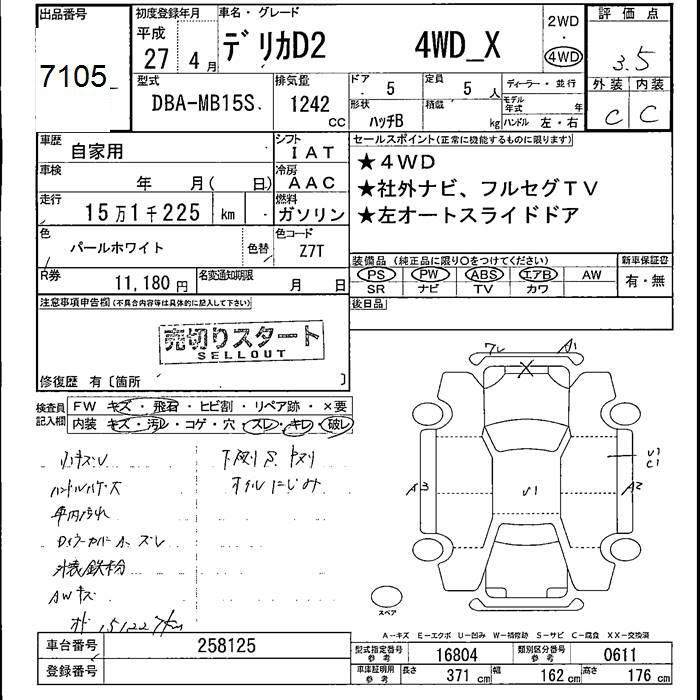 出品番号
7105
初度登録年月
平成
27 4月
車名・グレード
デリカD2 4WD_X
2WD
・
4WD
評価点
3.5
外装 内装
C C
型式
DBA-MB15S
排気量
1242
CC
ドア
5
定員
5
人
形状
ハッチB
積載
kg
ディーラー・並行
モデル
年式
年
ハンドル 左・右
車歴
自家用
シフト
IAT
車検
年 月( 日)
冷房
AAC
走行
15万1千225 km
燃料
ガソリン
色
パールホワイト
色替
色コード
Z7T
R券
11,180 円
名変通知期限
月 日
セールスポイント(正常に機能するものに限ります)
★4WD
★社外ナビ、フルセグTV
★左オートスライドドア
装備品(純正品に限り○をつけてください)
新車保証書
PS PW ABS エアB AW
SR ナビ TV カワ
有・無
後日品
注意事項申告欄(不具合内容等は具体的に記入して下さい)
売切りスタート
SELLOUT
修復歴 有〔箇所 〕
検査員
記入欄
FW キズ・飛石・ヒビ割・リペア跡・×要
内装 キズ・汚レ・コゲ・穴・スレ・キレ・破レ
ハンドルハゲ大
車内汚れ
外装鉄粉
AWキズ
下廻りS
オイルにじみ
ワレ
A1
X
U1
C1
A3
U1
A2
スペア
A-キズ E-エクボ U-凹み W-補修跡 S-サビ C-腐食 XX-交換済
車台番号
258125
登録番号
型式指定番号
参考
16804
類別区分番号
参考
0611
車庫証明用
参考
長さ
371 cm
幅
162 cm
高さ
176 cm